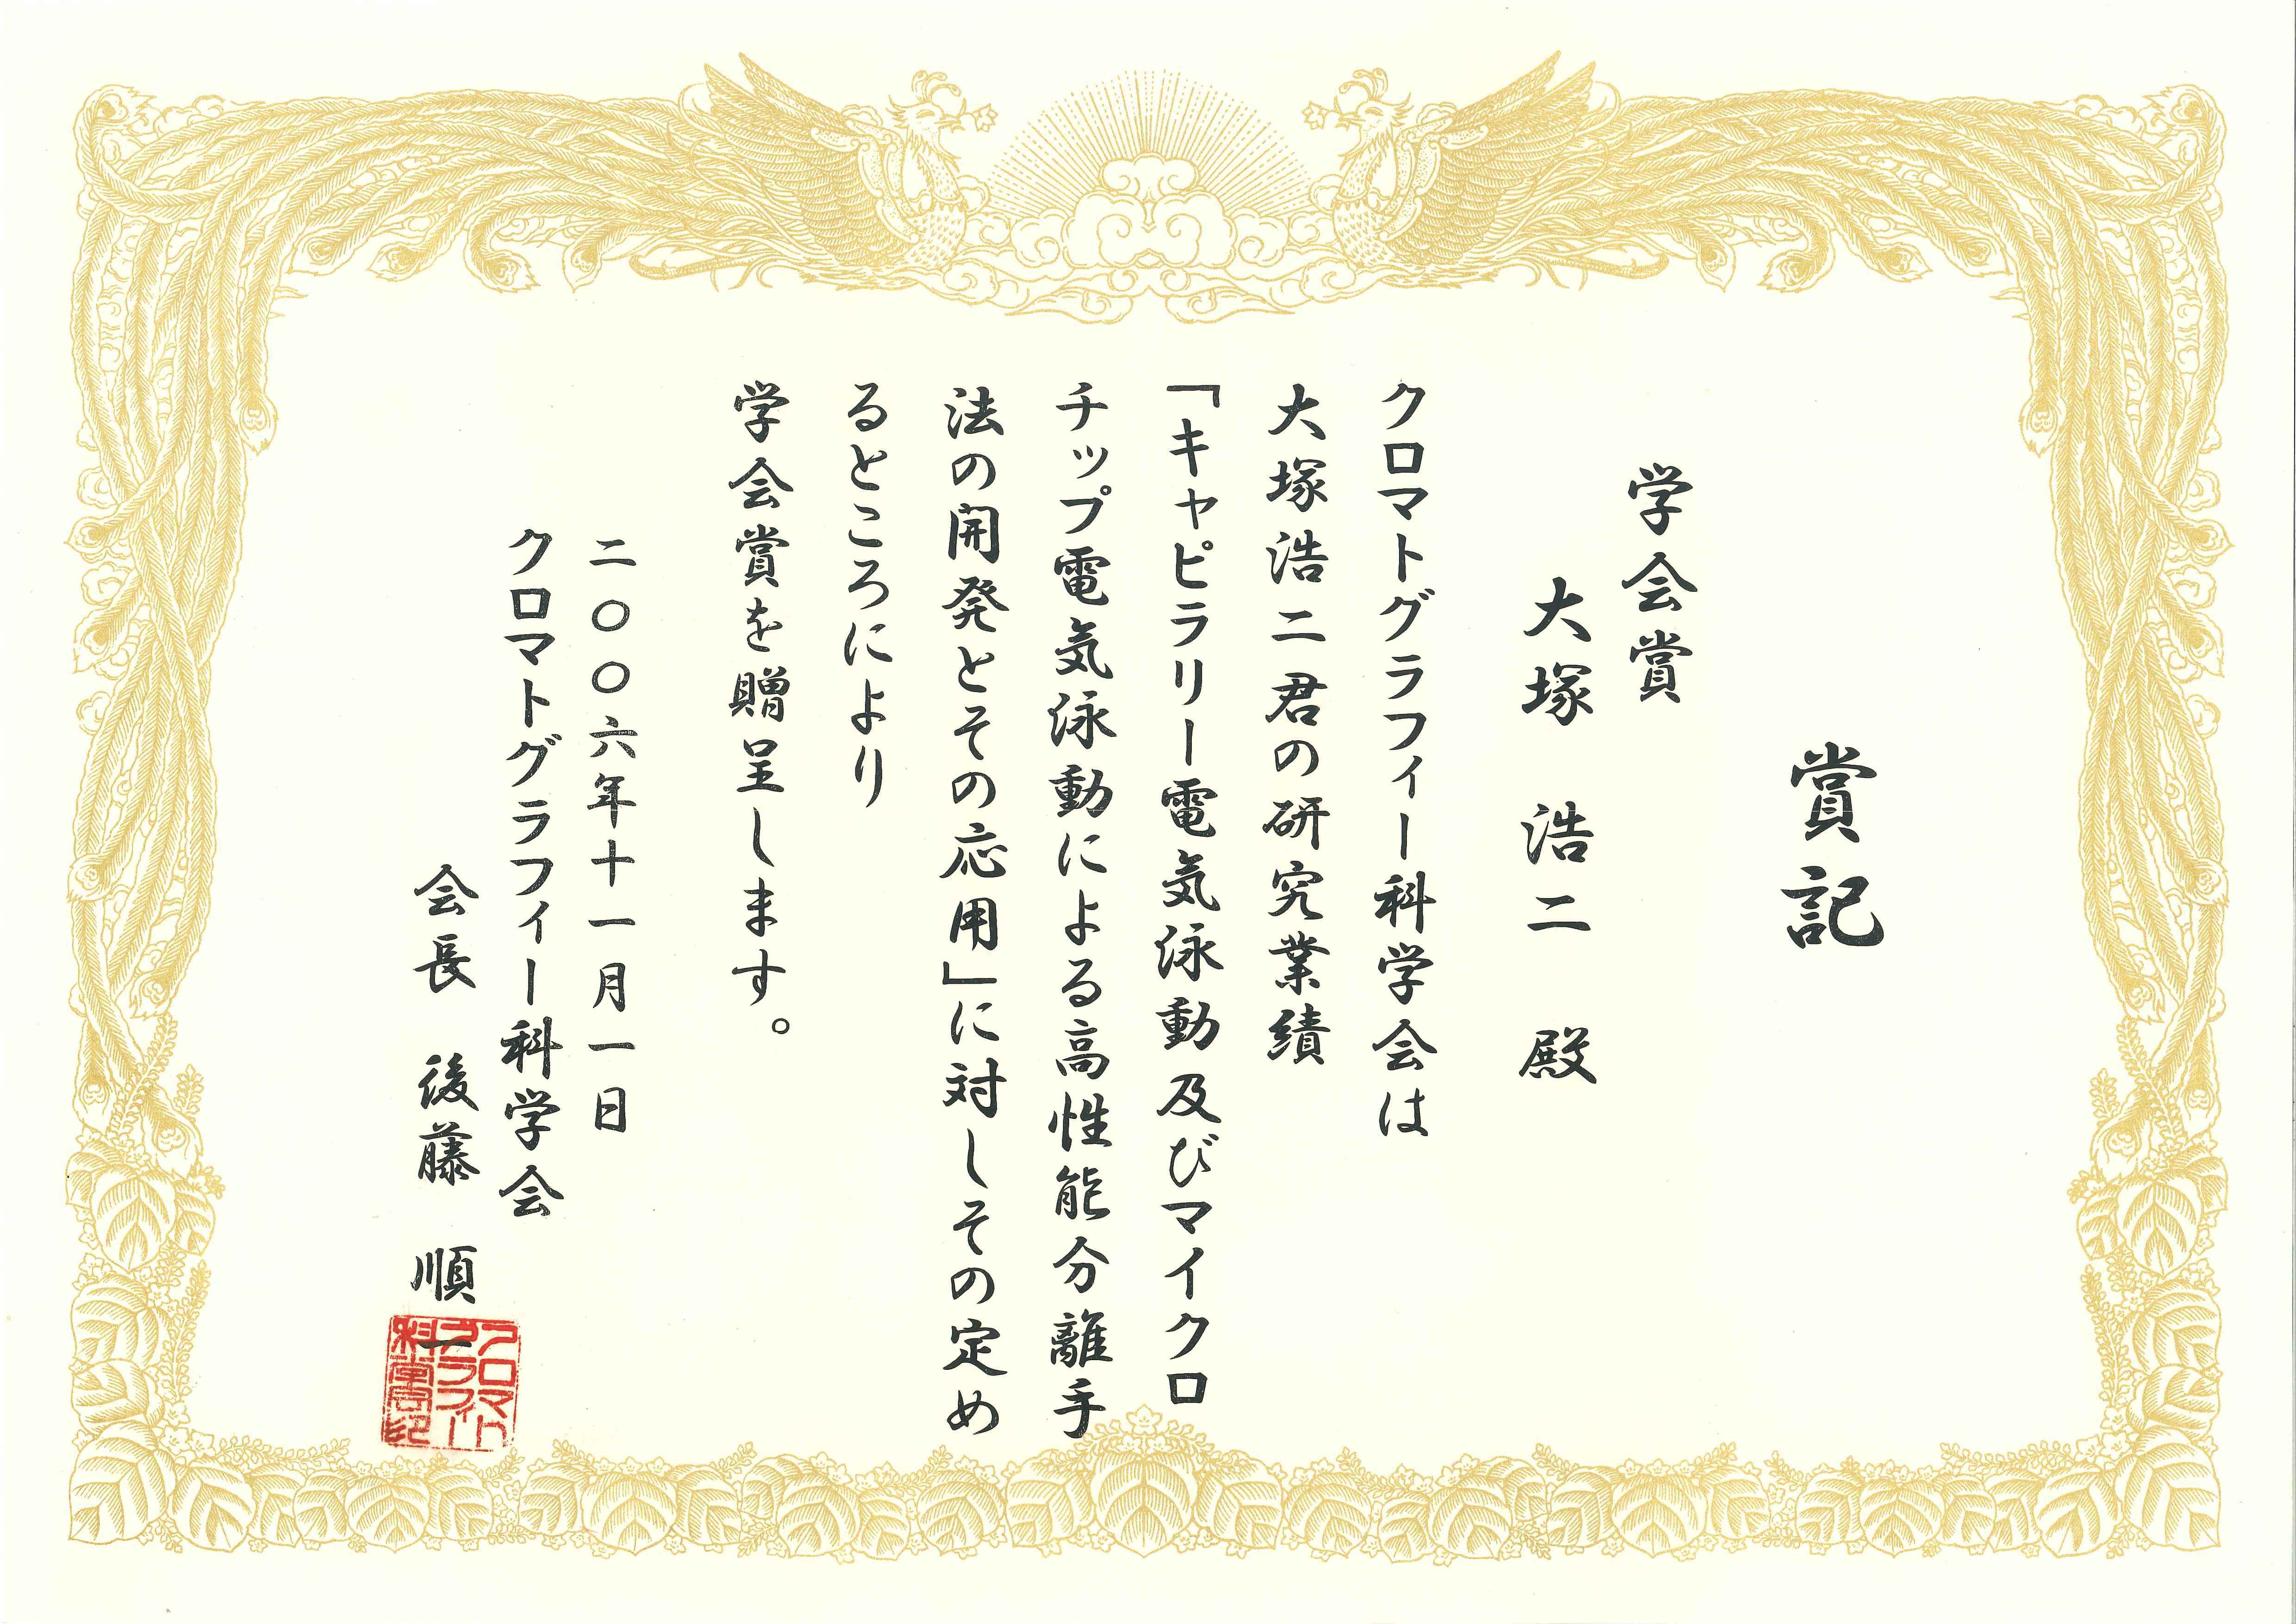 賞記
学会賞
大塚 浩二 殿
クロマトグラフィー科学会は
大塚浩二君の研究業績
「キャピラリー電気泳動及びマイクロ
チップ電気泳動による高性能分離手
法の開発とその応用」に対しその定め
るところにより
学会賞を贈呈します。
二〇〇六年十一月一日
クロマトグラフィー科学会
会長 後藤 順一
クロマト
グラフィー
科学会印